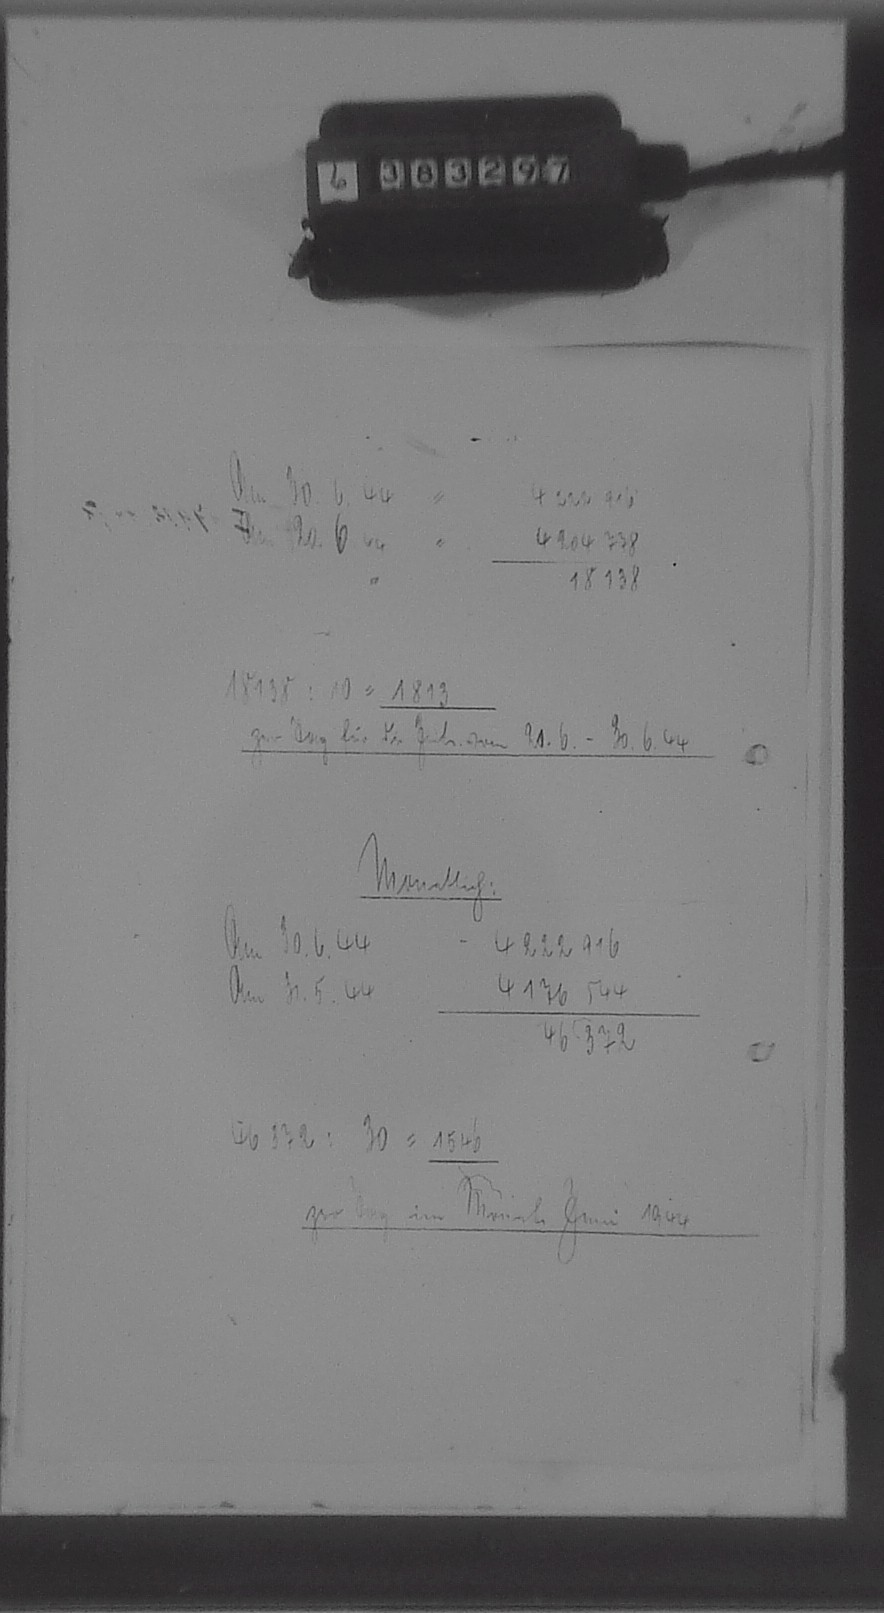 6 383297
Am 30. 6. 44 = 4 222 916
Am 20. 6. 44 = 4 204 778
= 18 138
18138 : 10 = 1813
pro Tag für die Zeit vom 21. 6. - 30. 6. 44
Monatlich:
Am 30. 6. 44 - 4 222 916
Am 31. 5. 44 4 176 544
46 372
46 372 : 30 = 1546
pro Tag im Monat Juni 1944